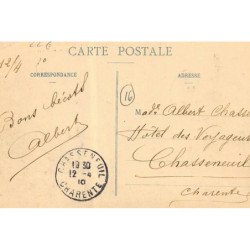 CARTE POSTALE
CORRESPONDANCE
ADRESSE
12/4
10
16
Bons bécots
Albert
Mr Albert Chass
Hôtel des Voyageur
Chasseneuil
Charente
CHASSENEUIL
19 30
12 - 4
10
CHARENTE